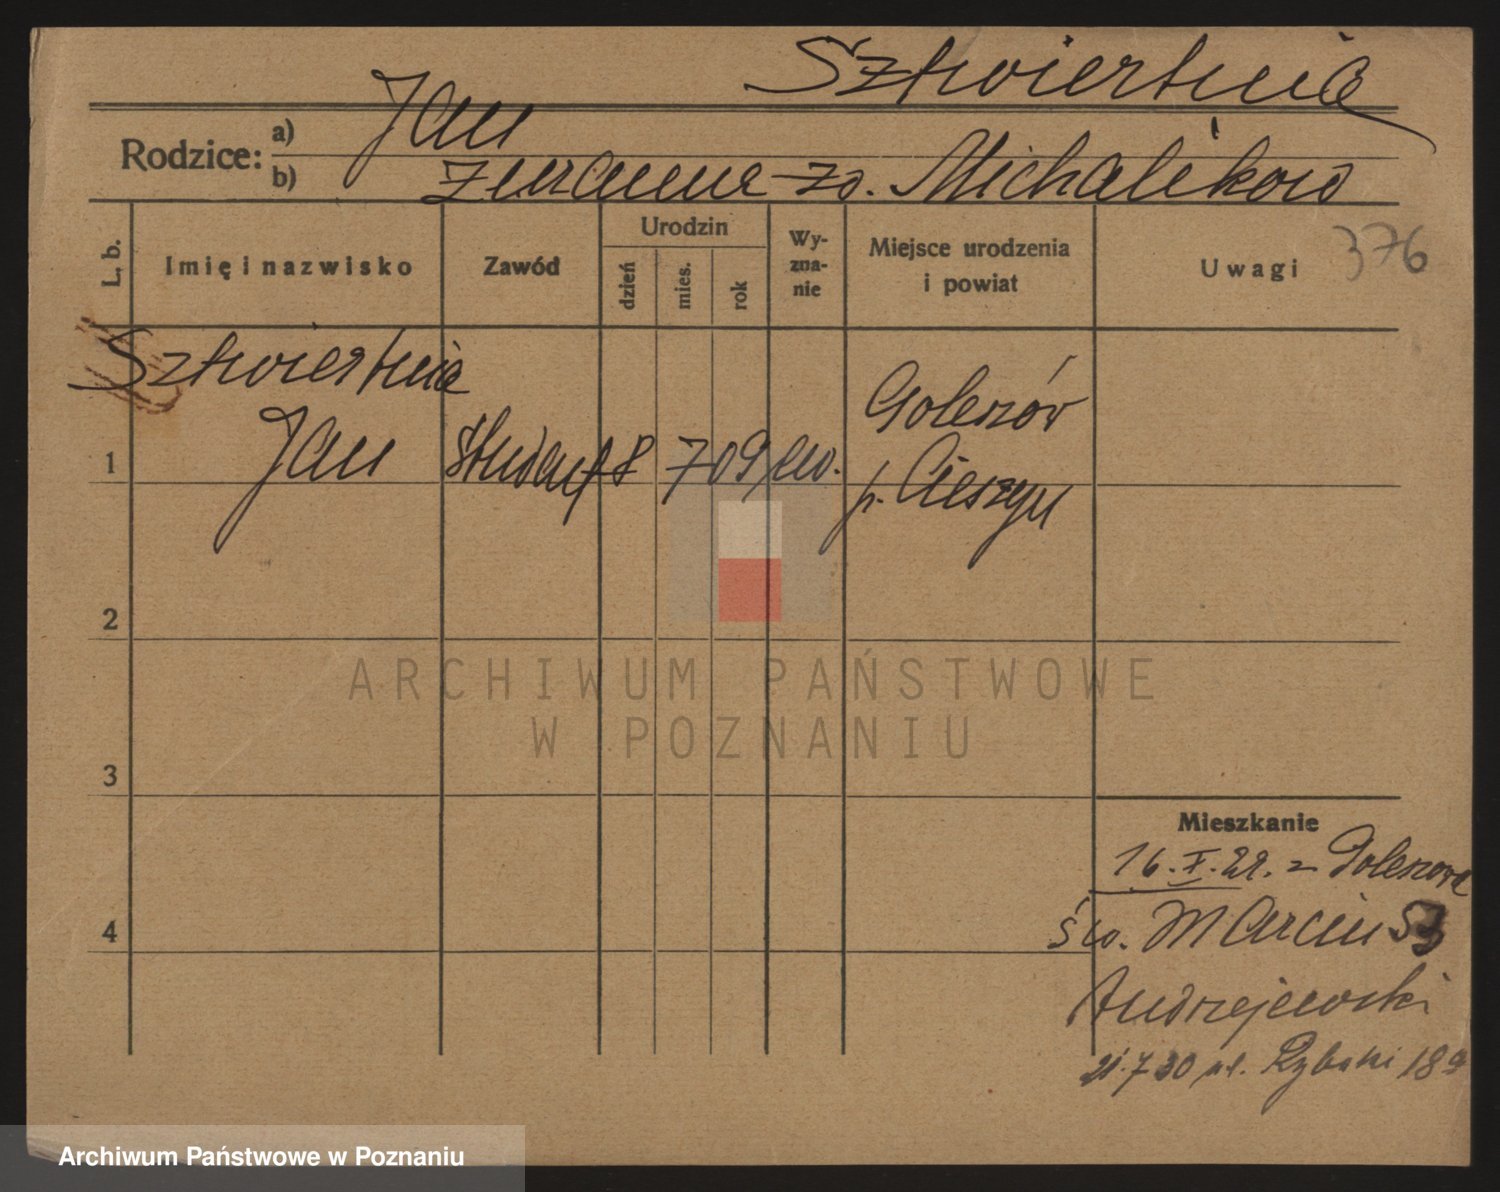 Sztwiertnia
Rodzice: a) Jan
b) Zuzanna zd. Michalików
L. b.
Imię i nazwisko
Zawód
Urodzin
dzień
mies.
rok
Wy-
zna-
nie
Miejsce urodzenia
i powiat
Uwagi
376
Sztwiertnia
1 Jan student 8 7 09 ew. Goleszów
p. Cieszyn
2
3
4
ARCHIWUM PAŃSTWOWE
W POZNANIU
Mieszkanie
16.X.29. z Goleszowa
św. Marcin
Andrzejewski
21.7 30 ul. Rybaki 18
Archiwum Państwowe w Poznaniu